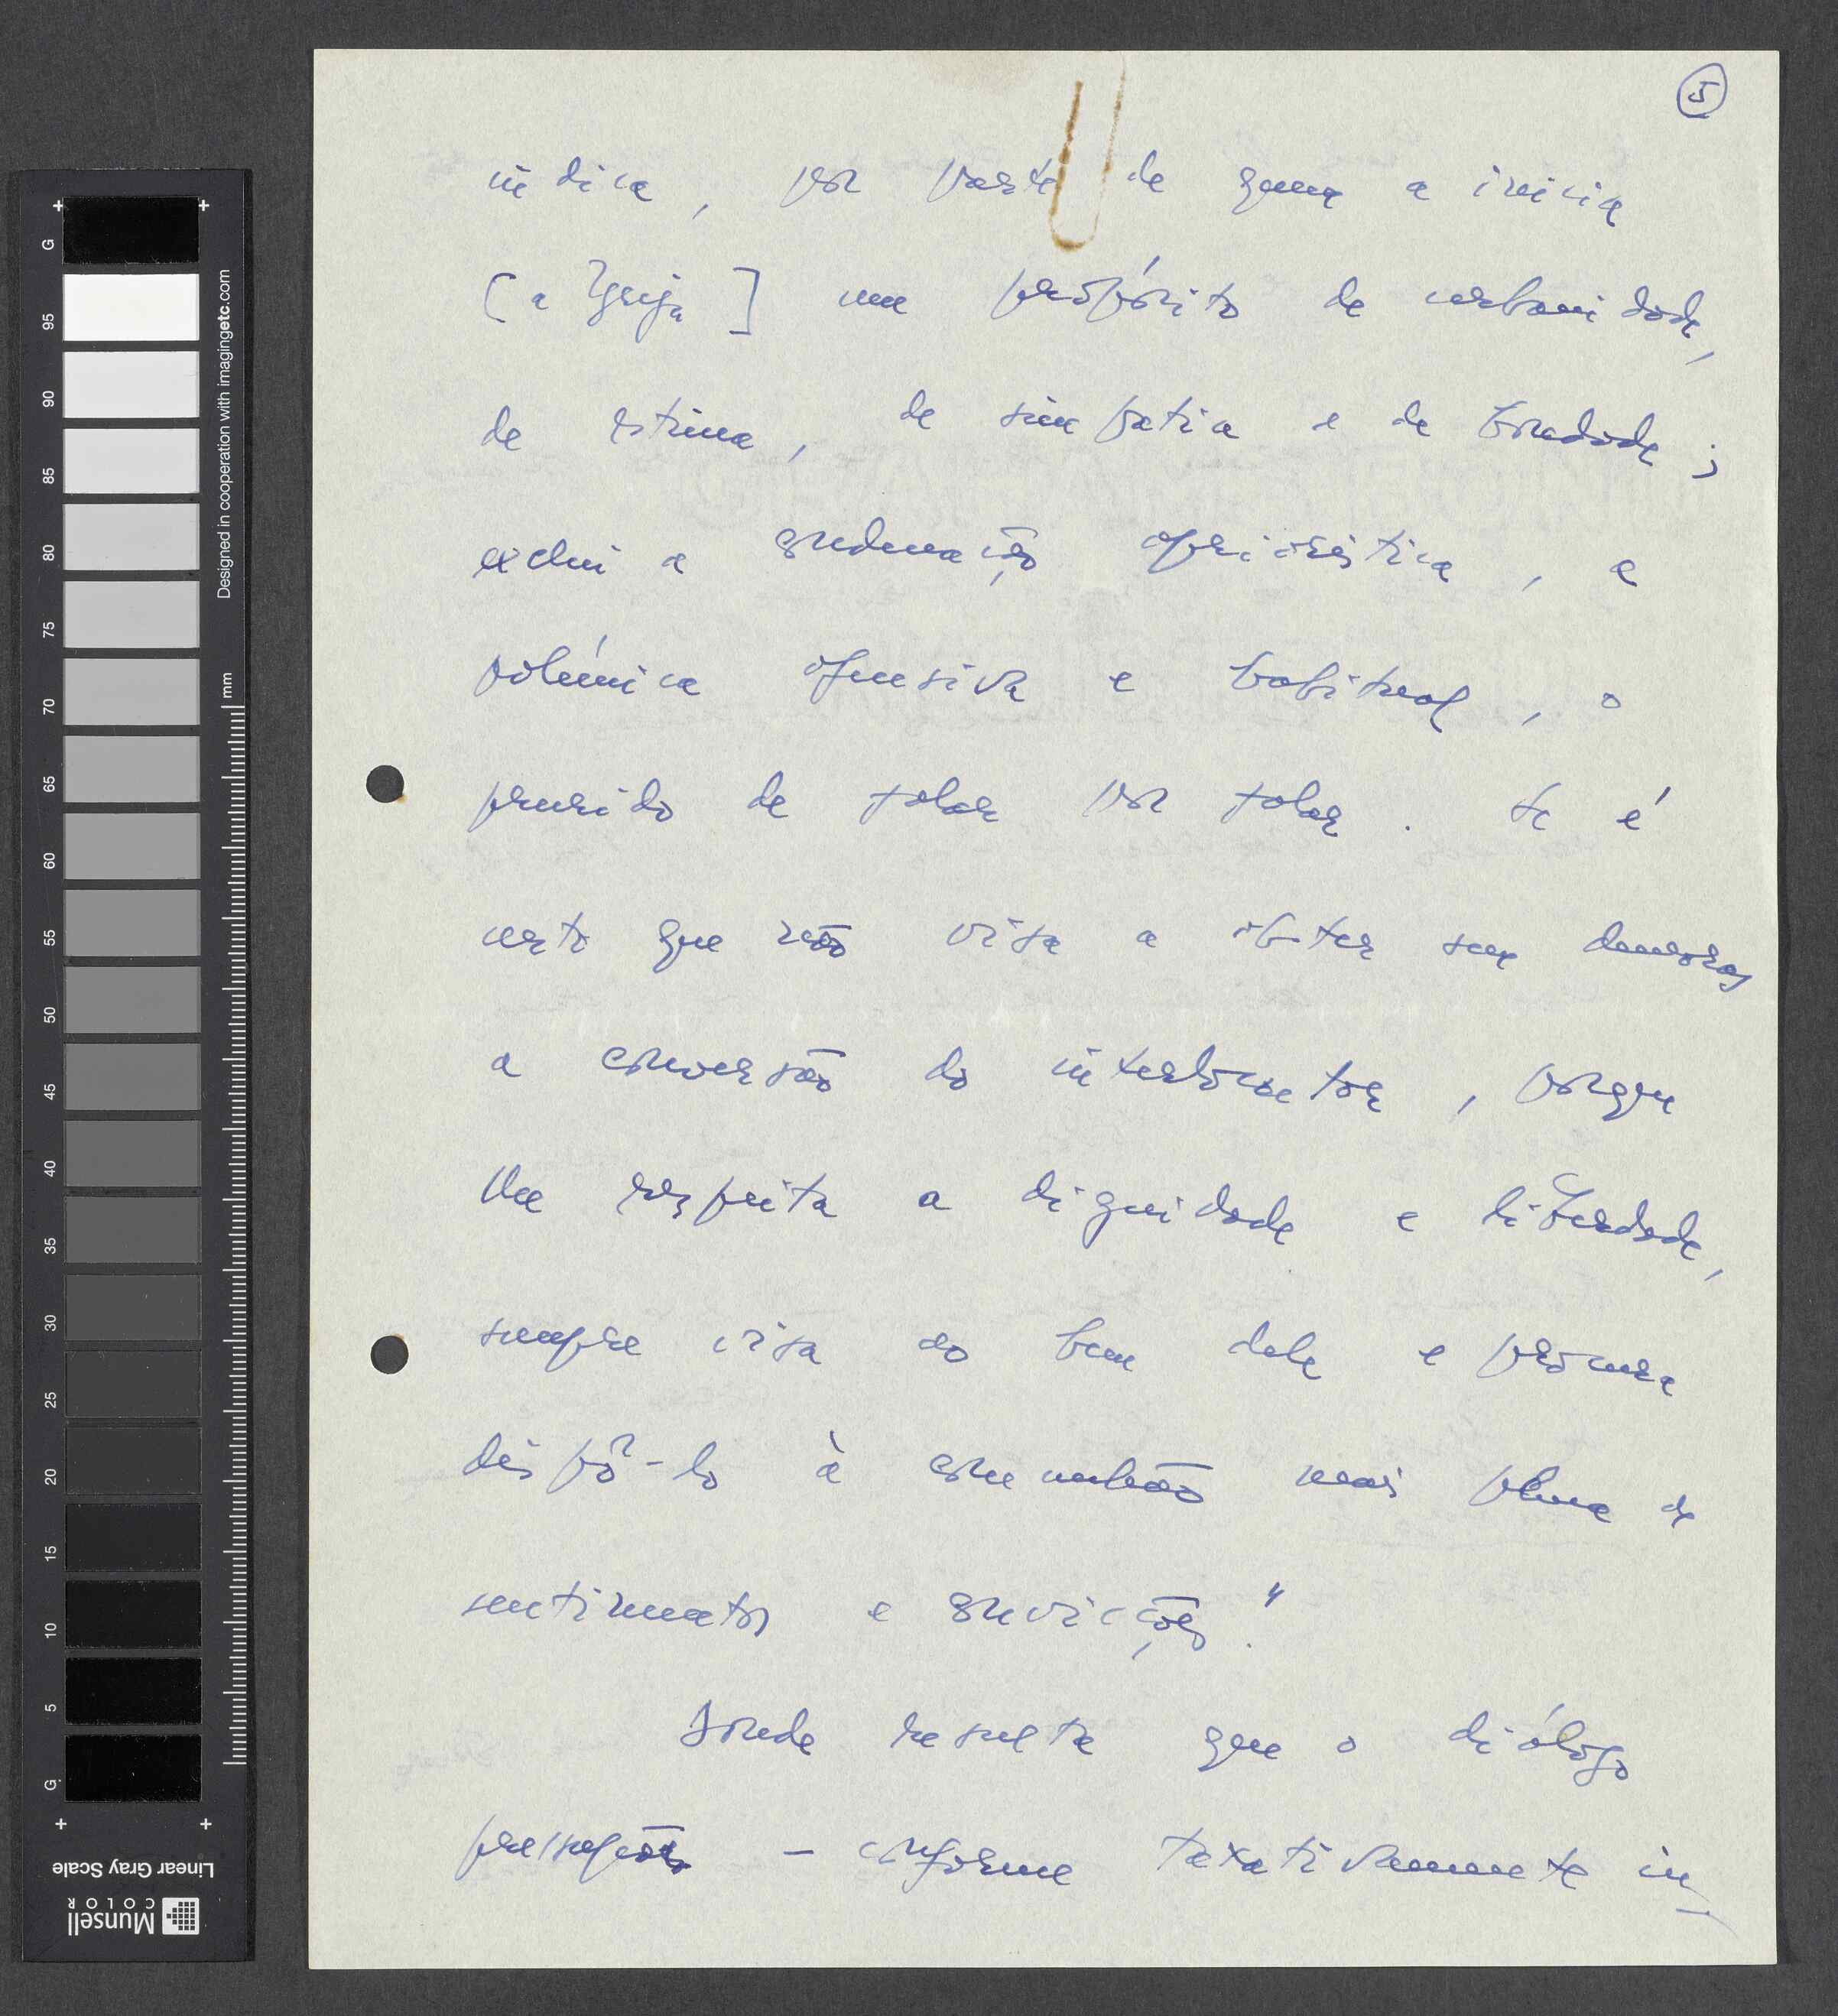 5
indica, por parte de quem a inicia
[a Igreja] um propósito de urbanidade,
de estima, de simpatia e de bondade;
exclui a condenação apriorística, a
polémica ofensiva e habitual, o
prurido de falar por falar. Se é
certo que não visa a obter sem demoras
a conversão do interlocutor, porque
lhe respeita a dignidade e liberdade,
sempre visa ao bem dele e procura
dispô-lo à comunhão mais plena de
sentimentos e convicções."
Donde resulta que o diálogo
pressupõe — conforme taxativamente in-
G 95 90 85 80 75 70 65 60 55 50 45 40 35 30 25 20 15 10 5 G
Designed in cooperation with imagingetc.com
mm
Linear Gray Scale
Munsell
COLOR